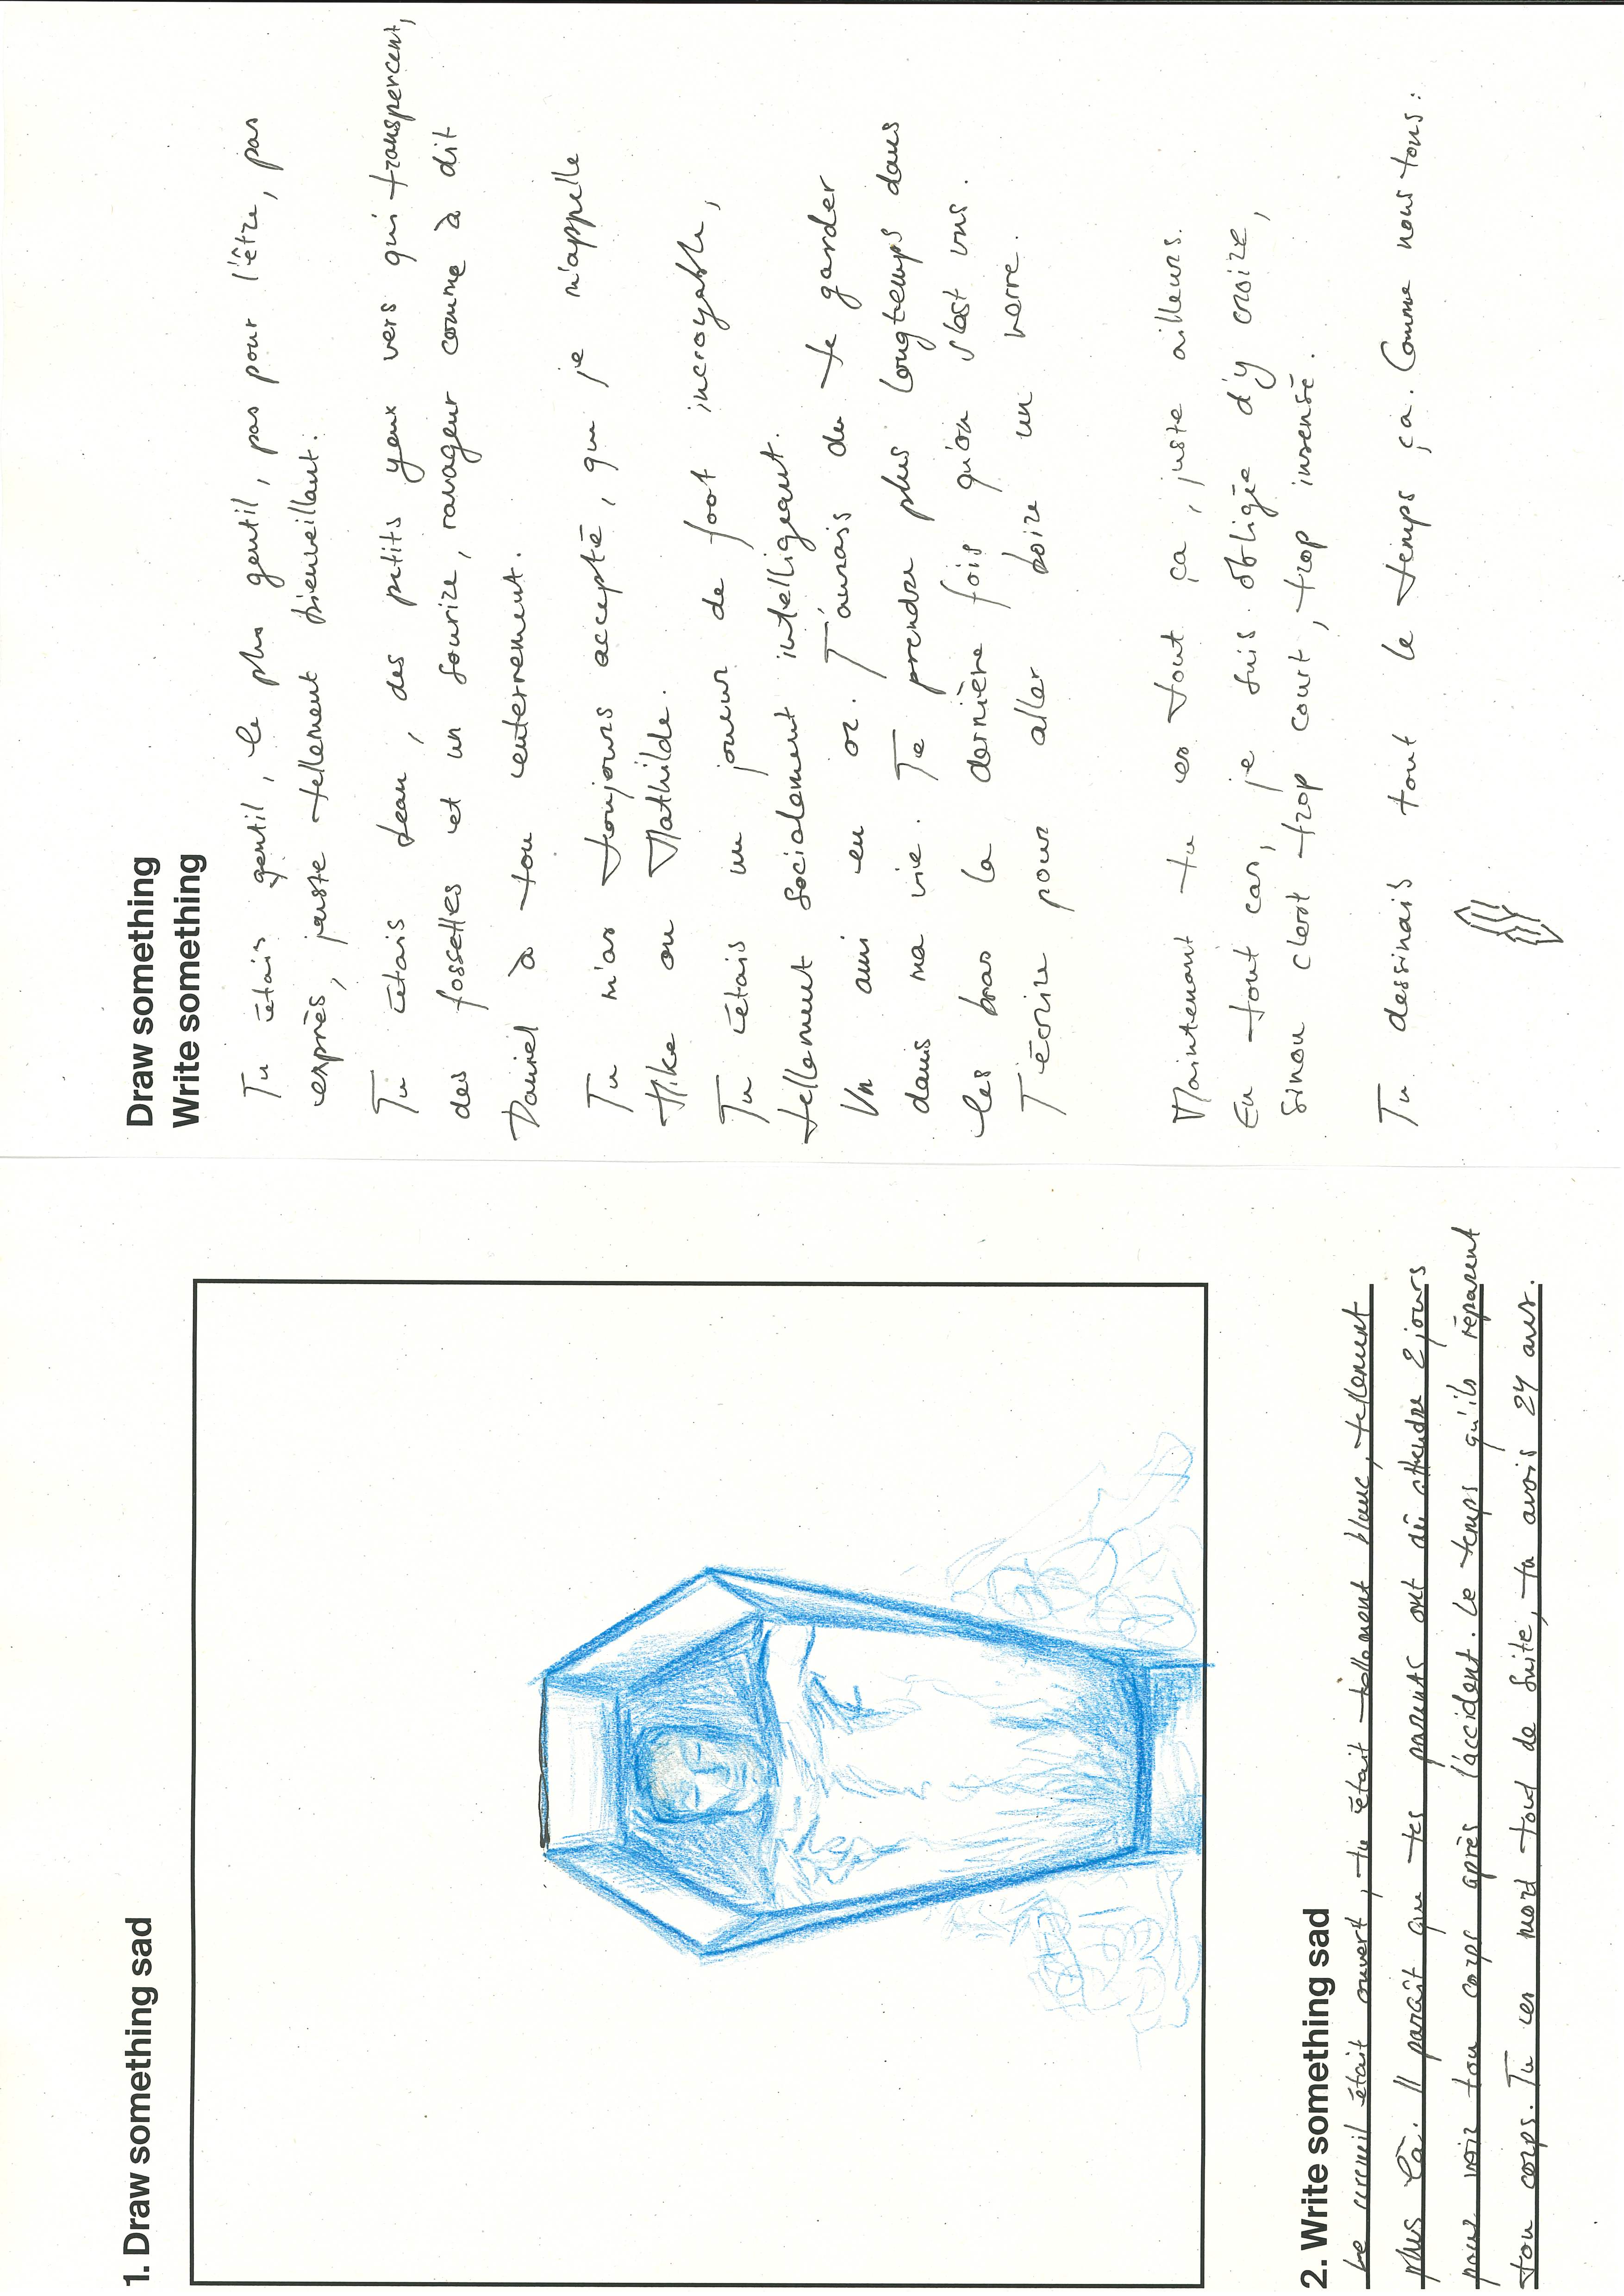 1. Draw something sad
2. Write something sad
Le cercueil était ouvert, tu était tellement blanc, tellement
plus là. Il paraît que tes parents ont dû attendre 2 jours
pour voir ton corps après l'accident. Le temps qu'ils réparent
ton corps. Tu es mort tout de suite, tu avais 24 ans.
Draw something
Write something
Tu étais gentil, le plus gentil, pas pour l'être, pas
exprès, juste tellement bienveillant.
Tu étais beau, des petits yeux vers qui transpercent,
des fossettes et un sourire, ravageur comme à dit
Daniel à ton enterrement.
Tu m'as toujours accepté, que je m'appelle
Mike ou Mathilde.
Tu étais un joueur de foot incroyable,
tellement socialement intelligeant.
Un ami en or. J'aurais du te garder
dans ma vie. Te prendre plus longtemps dans
les bras la dernière fois qu'on s'est vus.
T'écrire pour aller boire un verre.
Maintenant tu es tout ça, juste ailleurs.
En tout cas, je suis obligée d'y croire,
sinon c'est trop court, trop insensé.
Tu dessinais tout le temps ça. Comme nous tous :